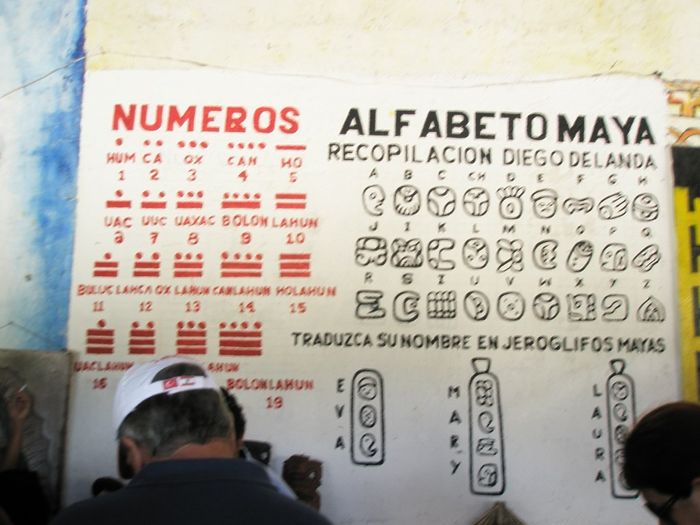 NUMEROS
HUM CA OX CAN HO
1 2 3 4 5
UAC UUC UAXAC BOLON LAHUN
6 7 8 9 10
BULUC LAHCA OX LAHUN CANLAHUN HOLAHUN
11 12 13 14 15
UACLAHUN LAHUN BOLONLAHUN
16 19
ALFABETO MAYA
RECOPILACION DIEGO DE LANDA
A B C CH D E F G H
J I K L M N O P Q
R S T U V W X Y Z
TRADUZCA SU NOMBRE EN JEROGLIFOS MAYAS
EVA
MARY
LAURA